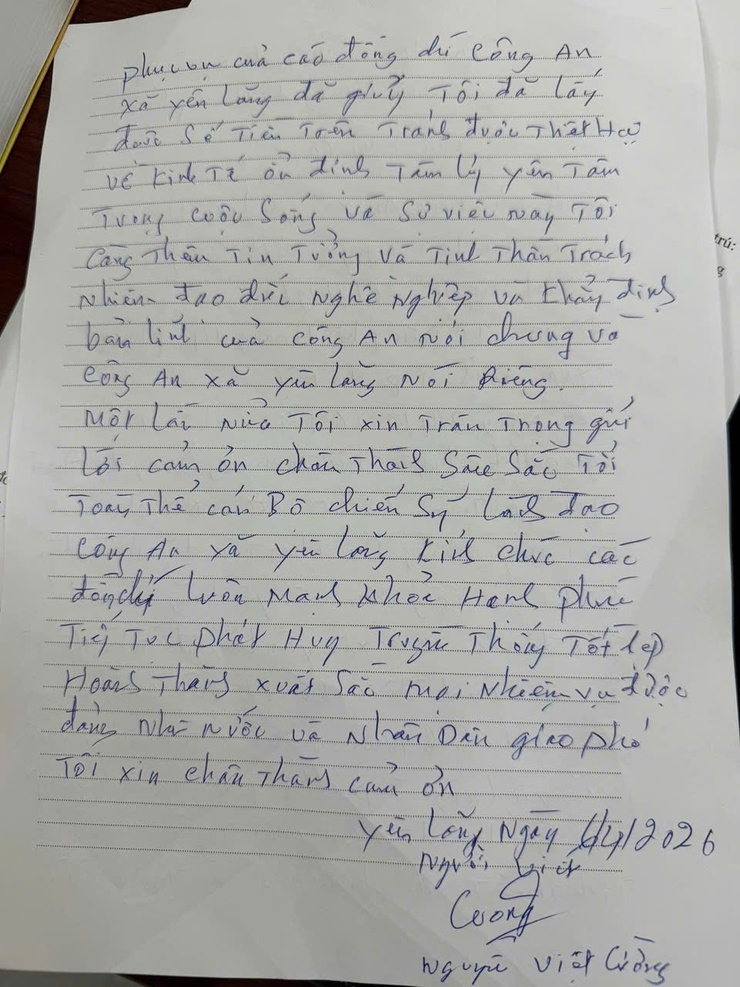 phục vụ của các đồng chí Công An
xã yên lãng đã giúp Tôi đã lấy
được Số Tiền Trên Tránh được Thiệt Hại
về Kinh Tế ổn định Tâm lý yên Tâm
Trong cuộc Sống và Sự việc này Tôi
Càng Thêm Tin Tưởng và Tinh Thần Trách
Nhiệm đạo đức Nghề Nghiệp và khẳng định
bản lĩnh của công An nói chung và
Công An xã yên lãng Nói Riêng.
Một lần Nữa Tôi xin Trân Trọng gửi
lời cảm ơn chân Thành Sâu Sắc Tới
Toàn Thể cán Bộ chiến Sỹ lãnh đạo
Công An xã yên lãng Kính chúc các
đồng chí luôn Mạnh khỏe Hạnh phúc
Tiếp Tục phát Huy Truyền Thống Tốt đẹp
Hoàn Thành xuất Sắc mọi Nhiệm vụ được
đảng Nhà nước và Nhân Dân giao phó
Tôi xin chân Thành cảm ơn
yên lãng Ngày /4/2026
Người viết
Cương
Nguyễn Việt Cường
trú: